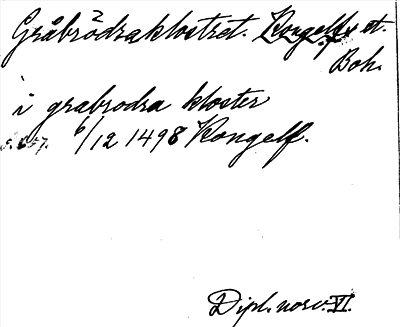 Gråbrödraklostret. Kongelfs st.
Boh.
i grabrodra kloster
s. 657. 6/12 1498 Kongelf.
Dipl. norv. VI.